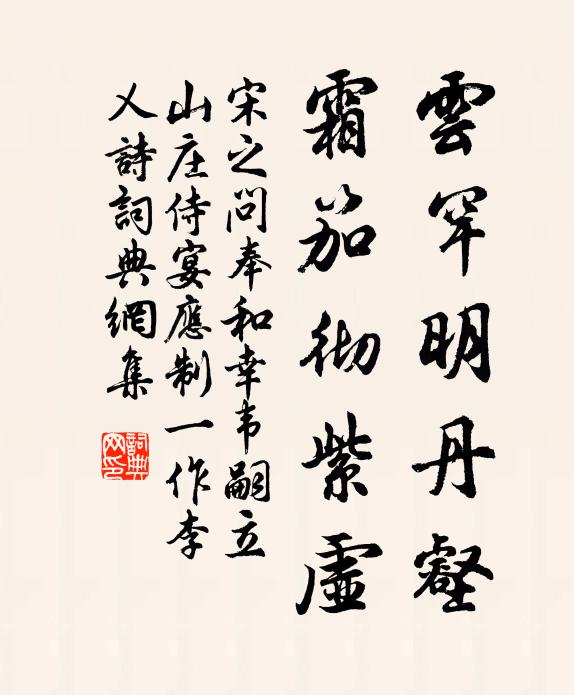 雲罕明丹壑
霜笳彻紫虛
宋之问奉和幸韦嗣立
山庄侍宴應制一作李
乂詩詞典網集
詞典网印